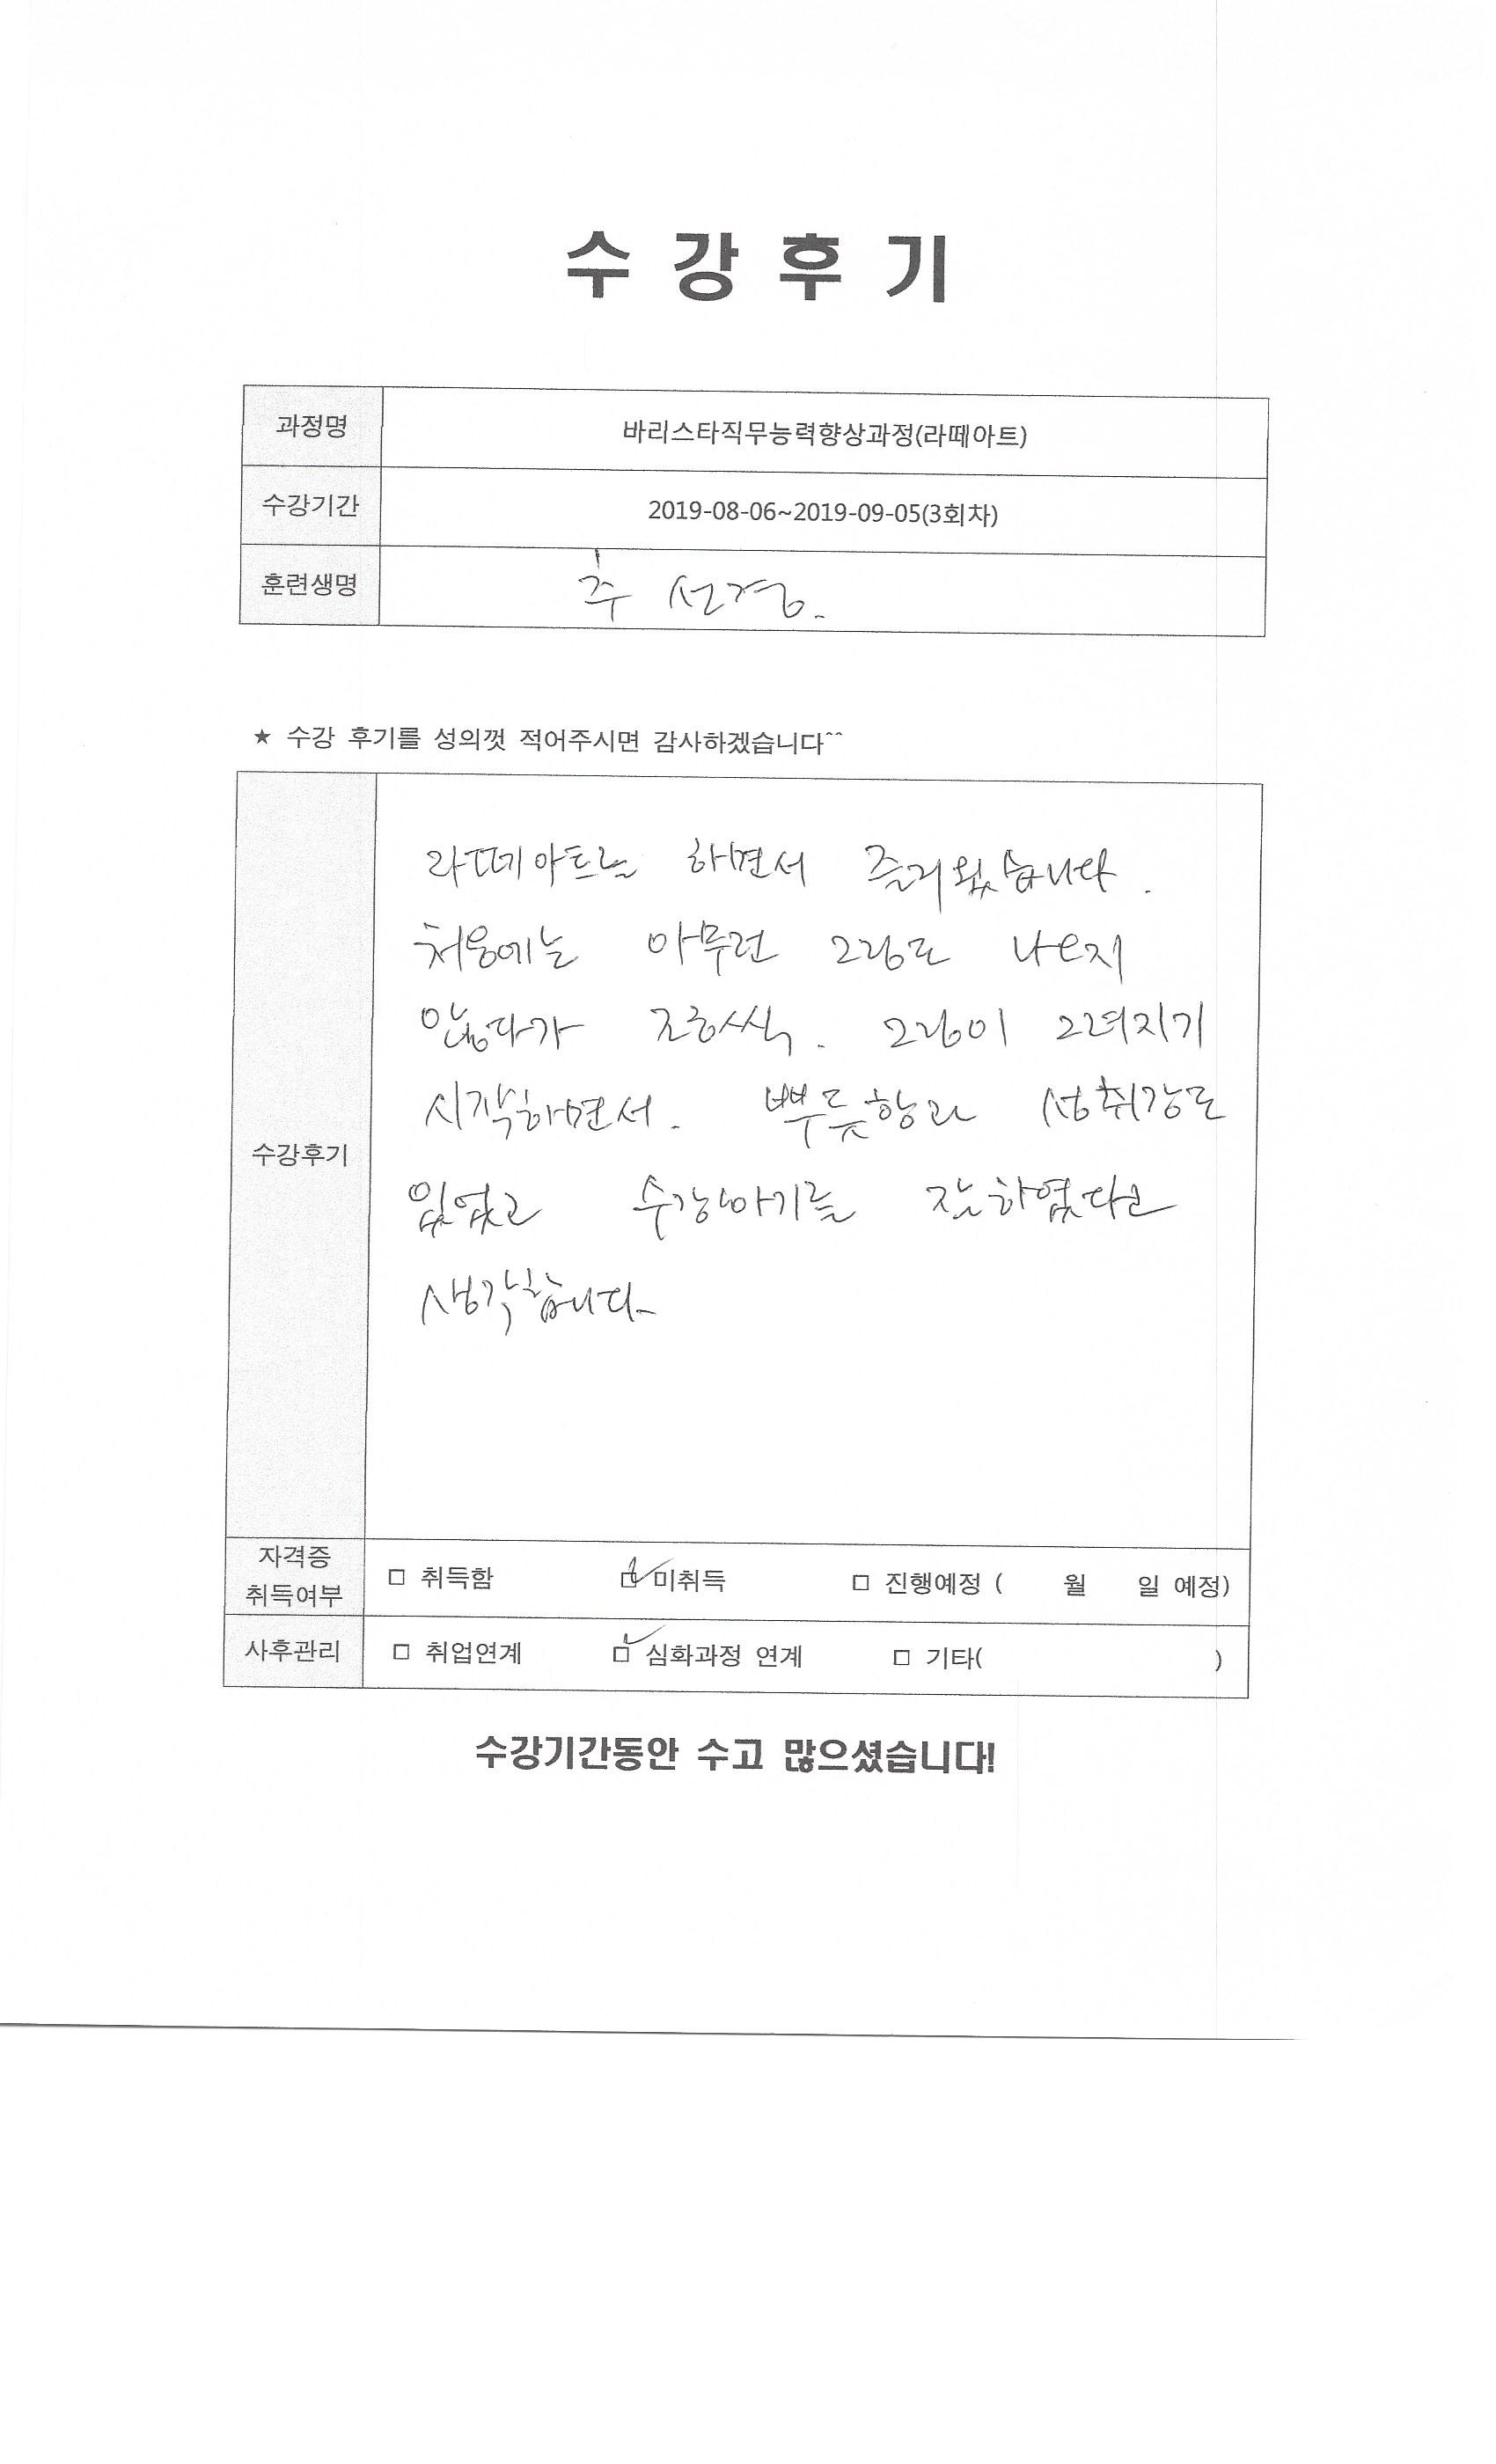 수 강 후 기
과정명 바리스타직무능력향상과정(라떼아트)
수강기간 2019-08-06~2019-09-05(3회차)
훈련생명 추 선경.
★ 수강 후기를 성의껏 적어주시면 감사하겠습니다^^
라떼아트를 하면서 즐거웠습니다.
처음에는 아무런 그림도 나오지
않다가 조금씩. 그림이 그려지기
시작하면서. 뿌듯함과 성취감도
수강후기
있었고 수강하기를 잘하였다고
생각합니다.
자격증
취득여부 □ 취득함 □ 미취득 □ 진행예정 ( 월 일 예정)
사후관리 □ 취업연계 □ 심화과정 연계 □ 기타( )
수강기간동안 수고 많으셨습니다!